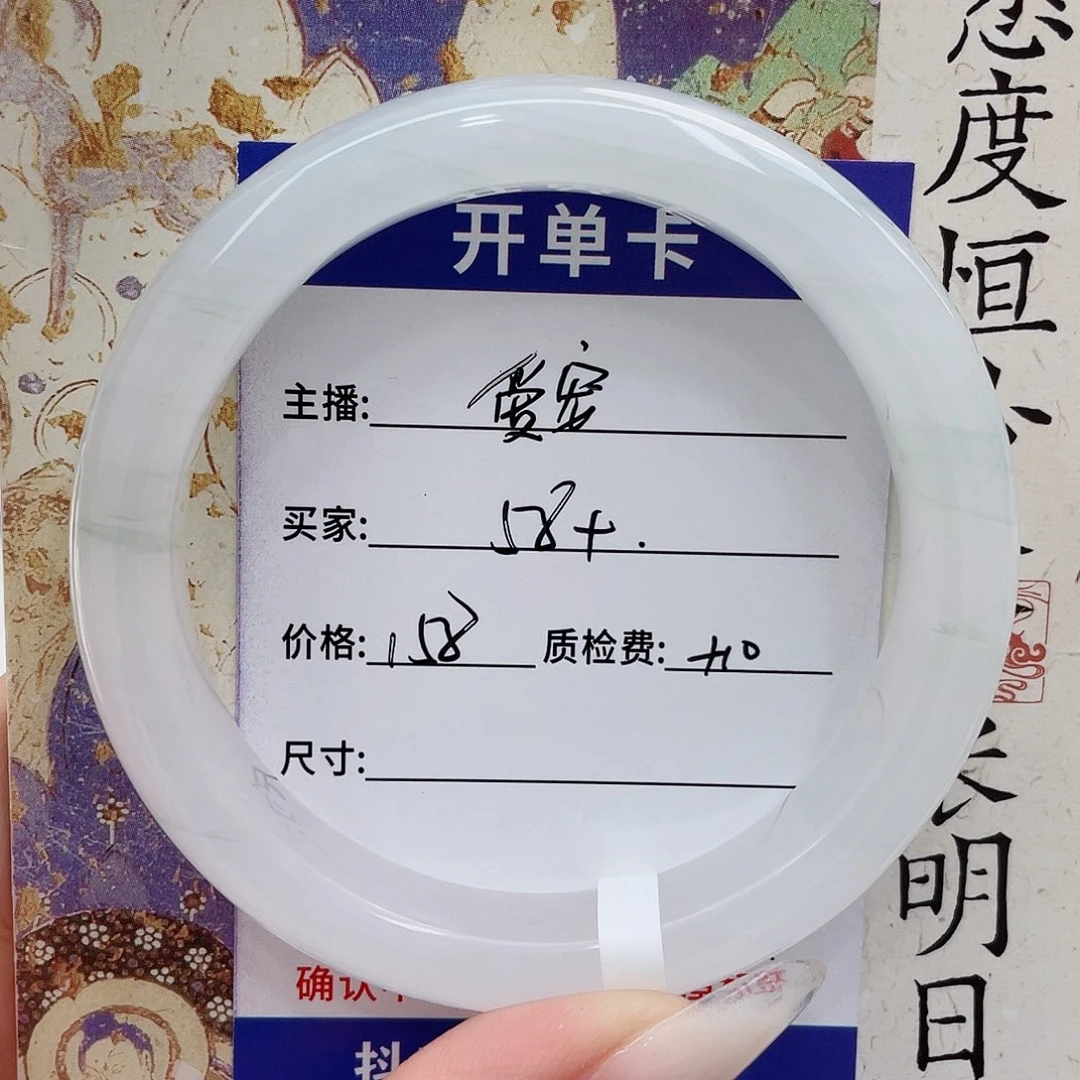 开单卡
主播:
买家: 58+.
价格: 158 质检费: +10
尺寸:
确认
抖
态度恒
长明
日